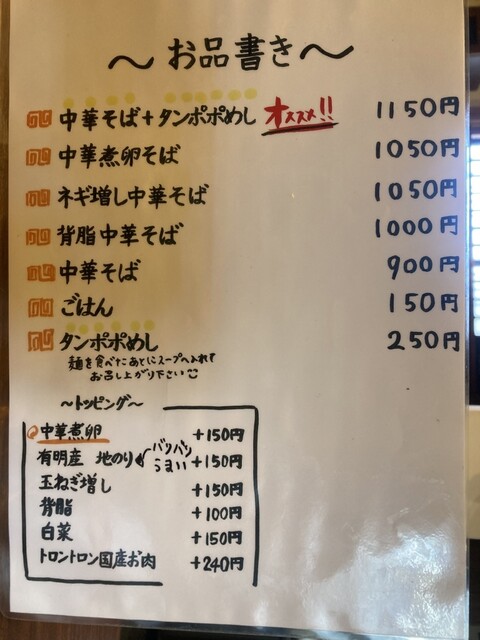 〜お品書き〜
中華そば+タンポポめし オススメ!! 1150円
中華煮卵そば 1050円
ネギ増し中華そば 1050円
背脂中華そば 1000円
中華そば 900円
ごはん 150円
タンポポめし 250円
麺を食べたあとにスープへ入れて
お召し上がり下さい
〜トッピング〜
中華煮卵 +150円
有明産 地のり バリバリうまい +150円
玉ねぎ増し +150円
背脂 +100円
白菜 +150円
トロントロン国産お肉 +240円